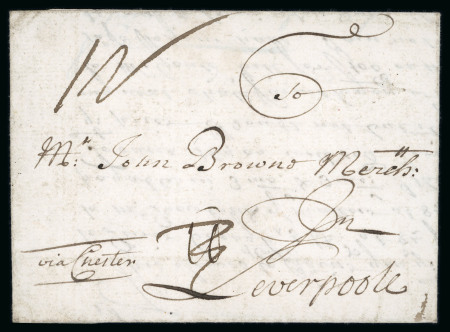 To
Mr. John Browne Merch:tt
In
via Chester
Leverpoole